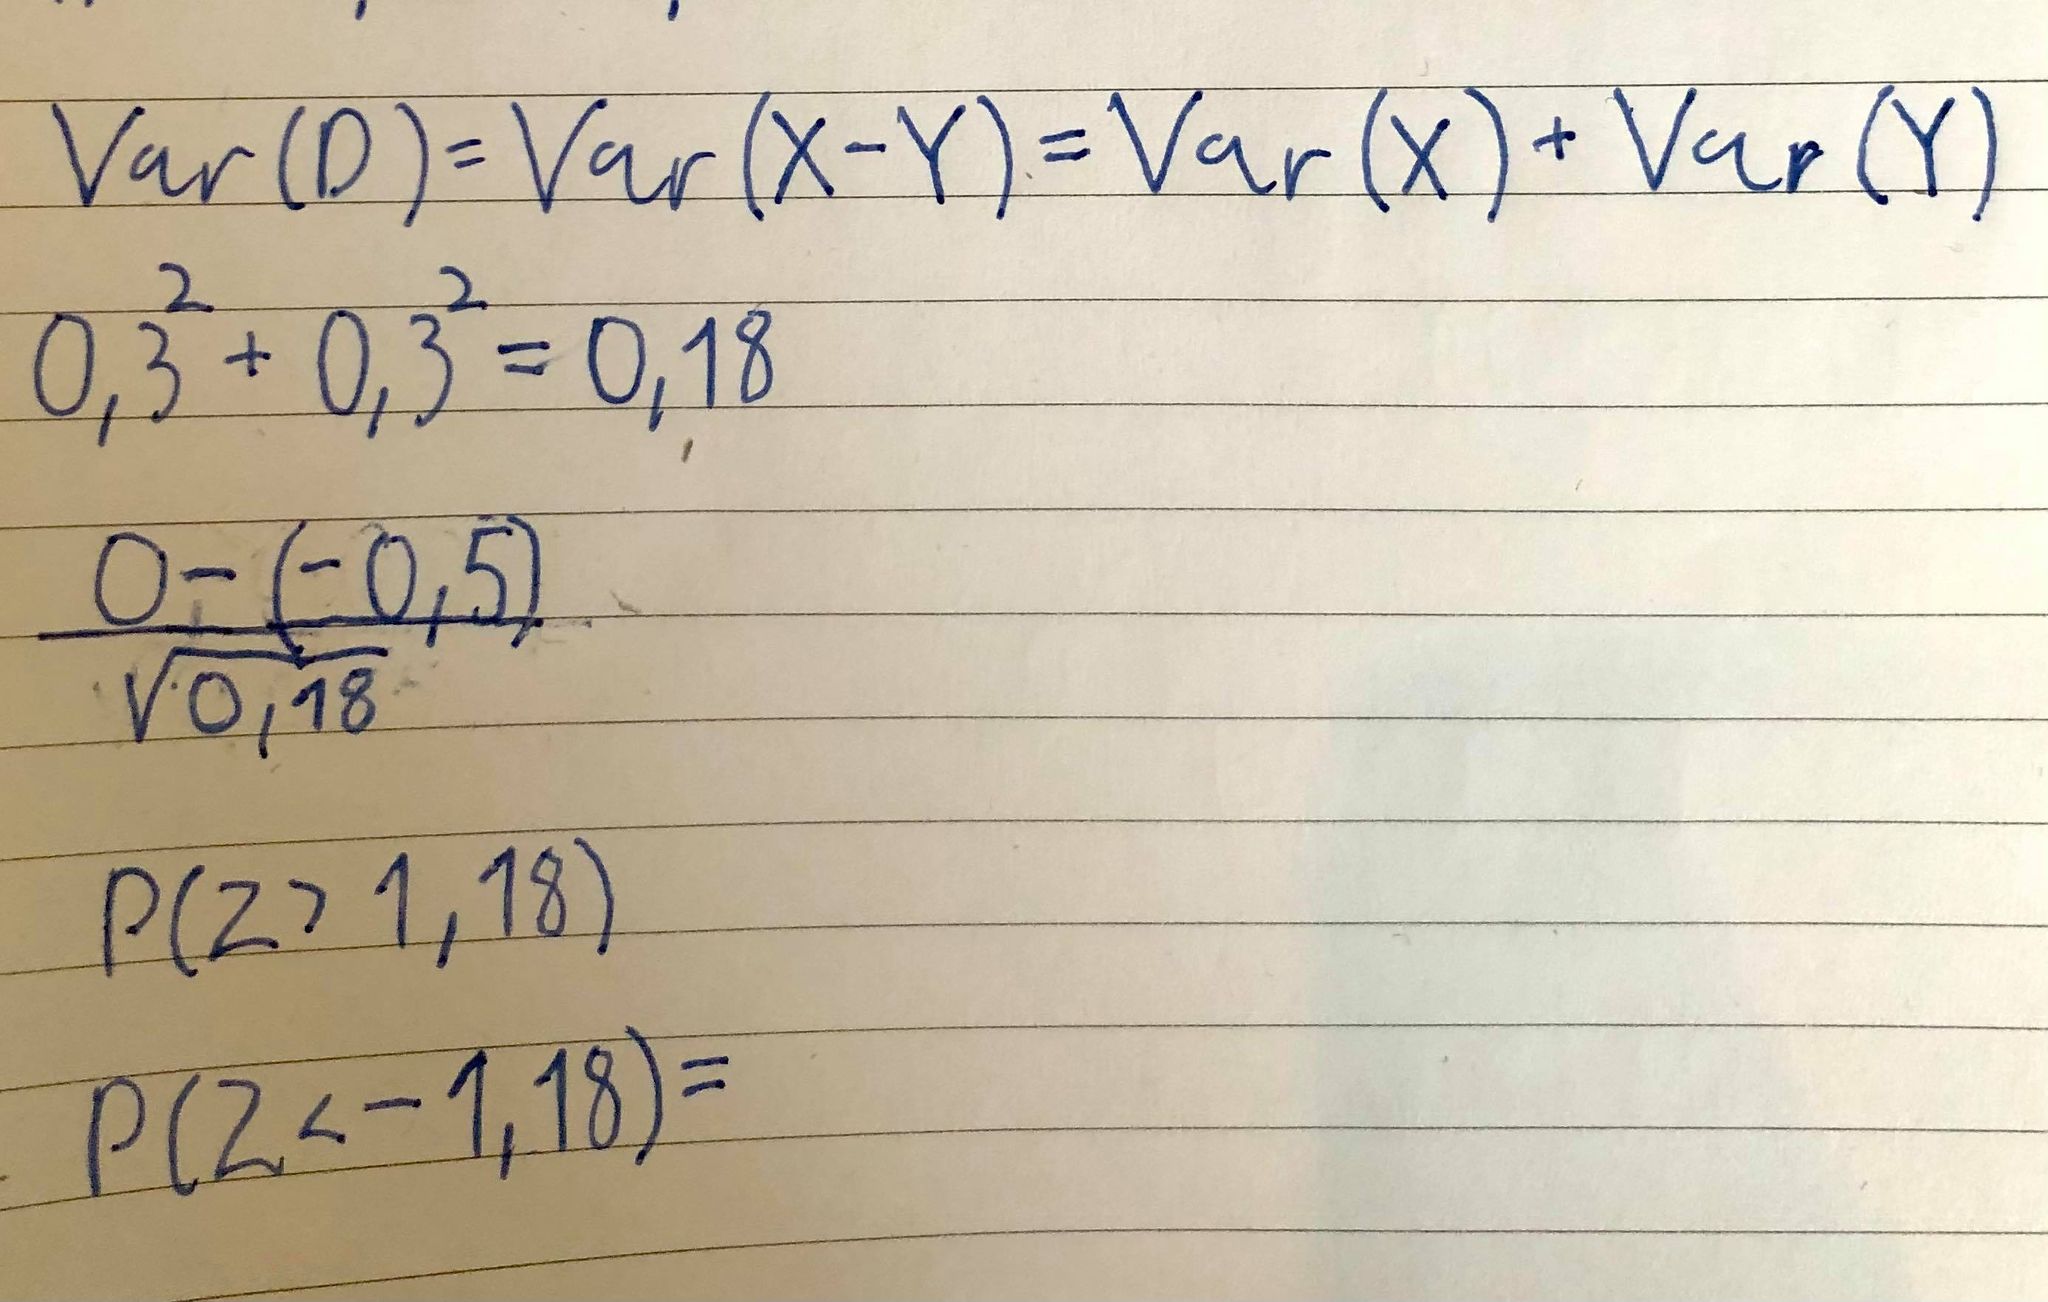 Var(D) = Var(X-Y) = Var(X) + Var(Y)
0,3² + 0,3² = 0,18
0-(-0,5)
√0,18
P(Z > 1,18)
P(Z < -1,18) =